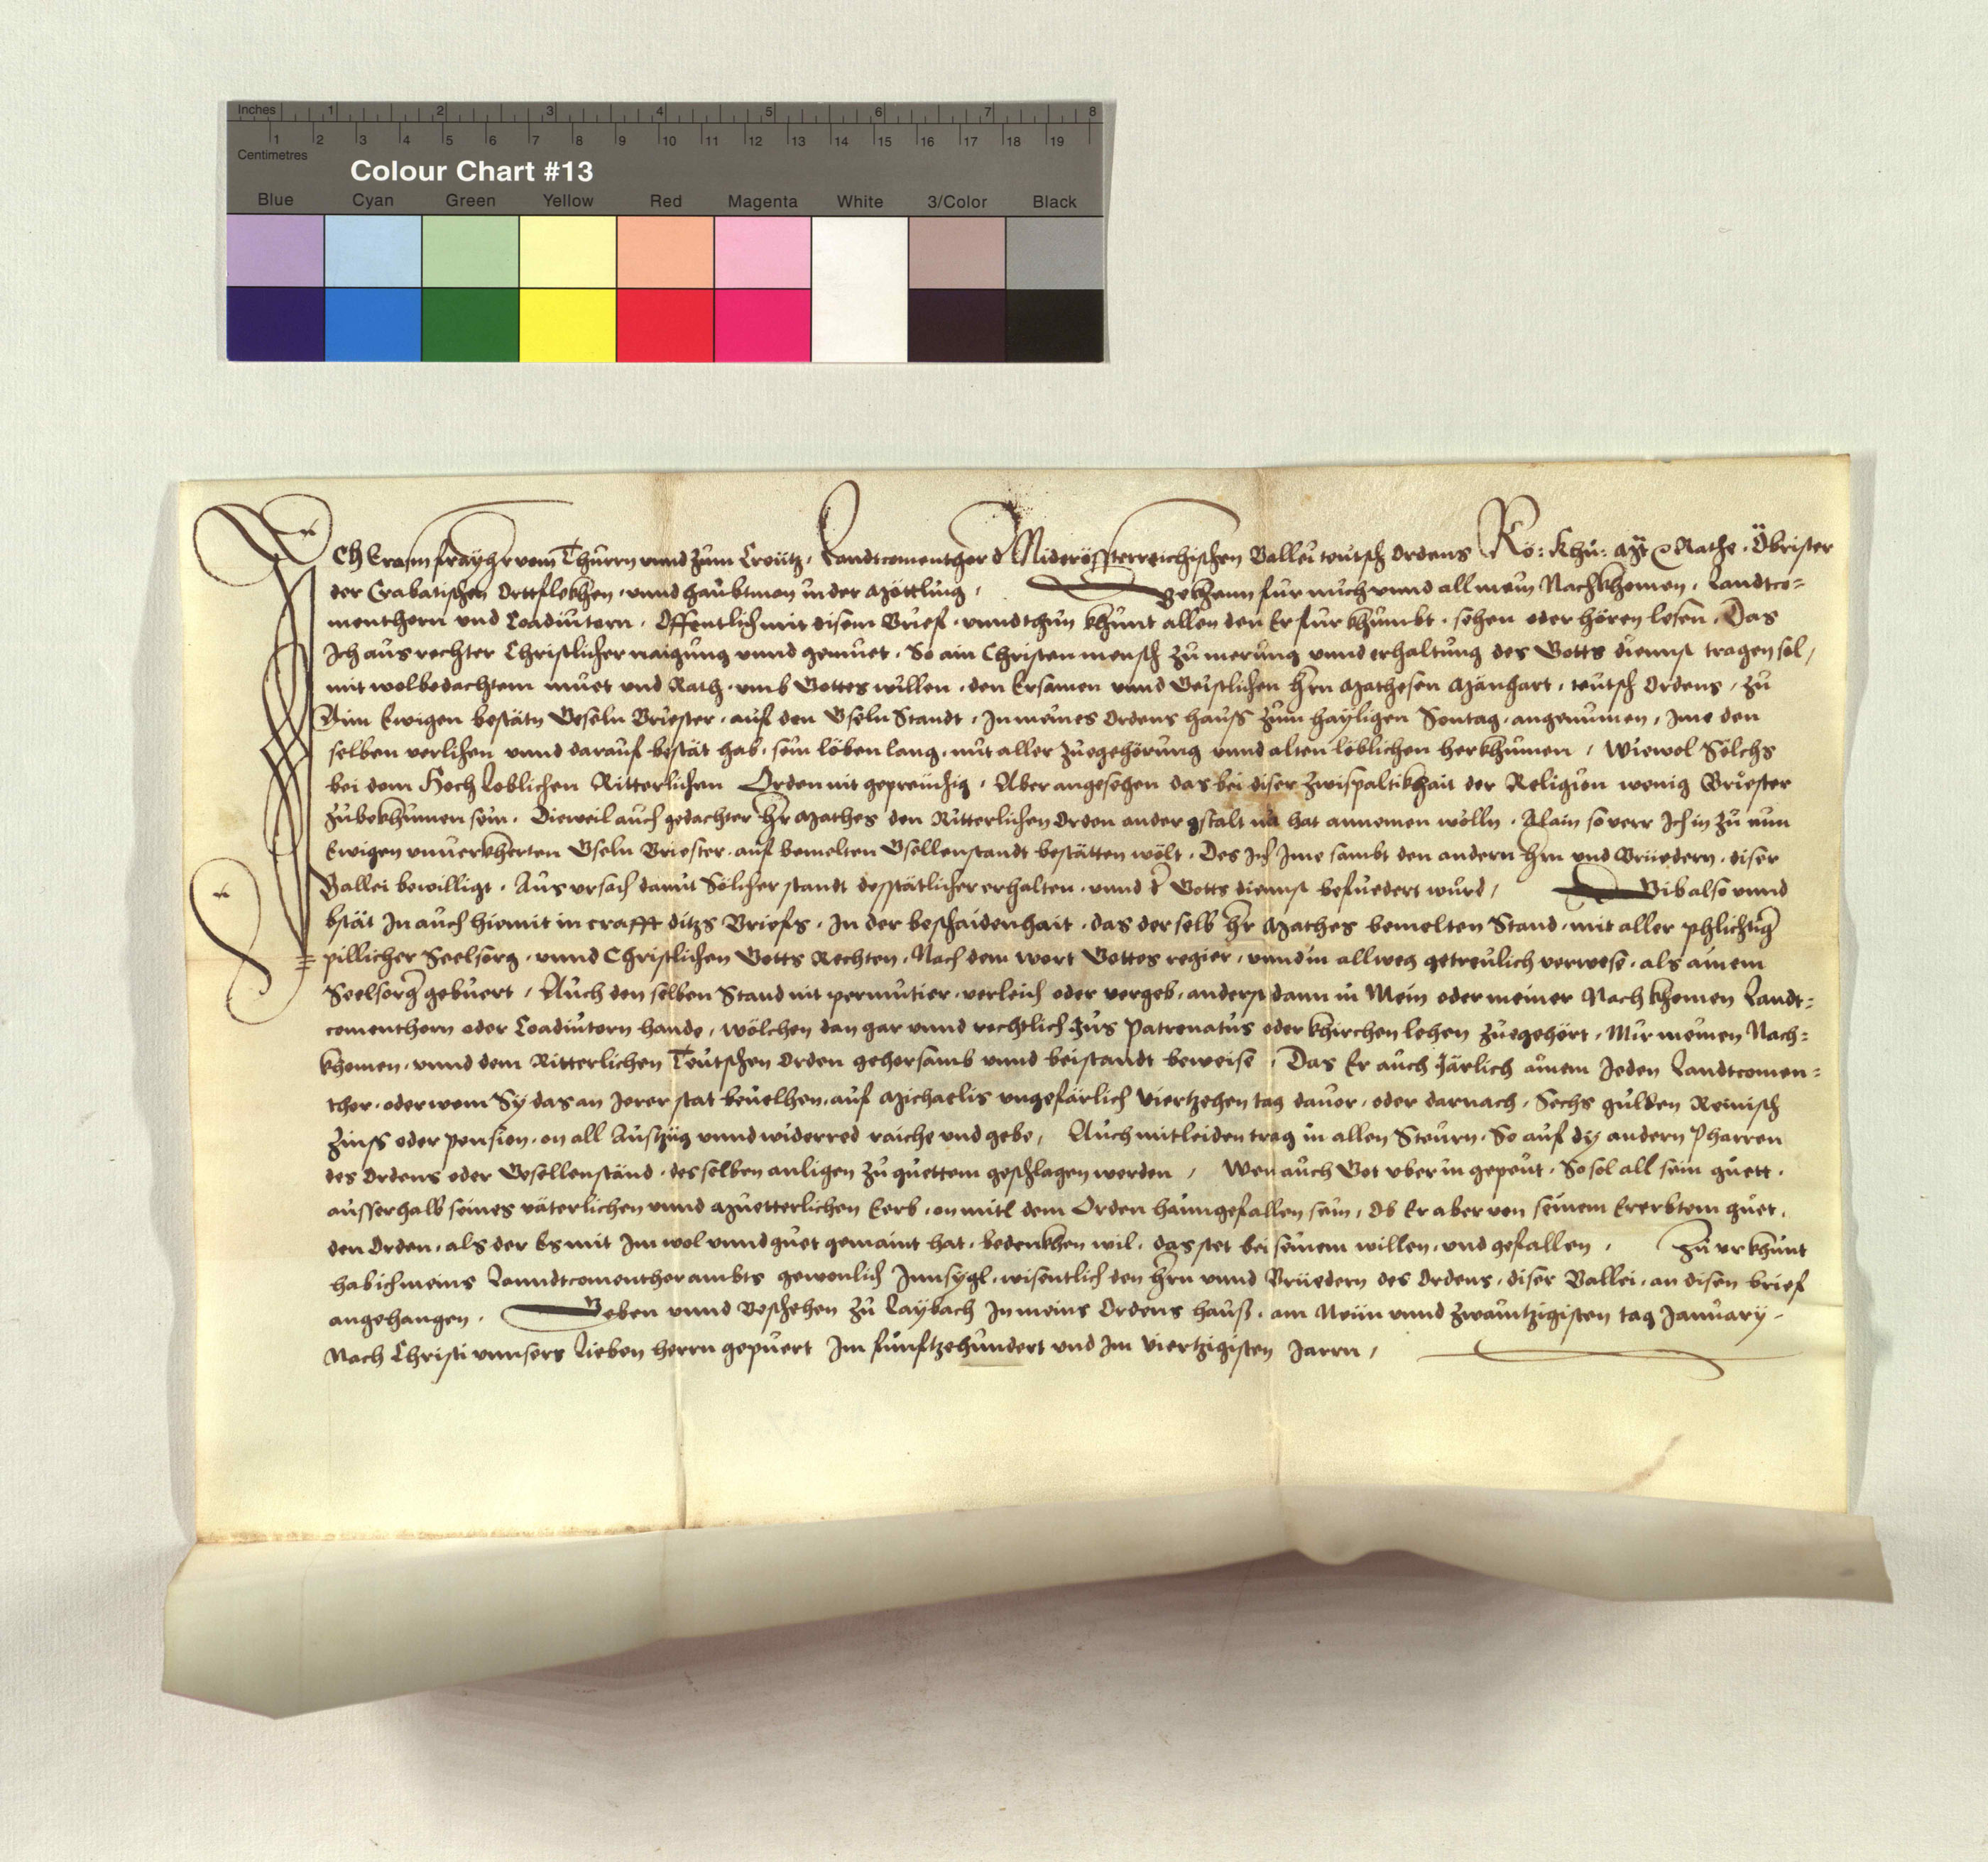 Inches 1 2 3 4 5 6 7 8
1 2 3 4 5 6 7 8 9 10 11 12 13 14 15 16 17 18 19
Centimetres
Colour Chart #13
Blue Cyan Green Yellow Red Magenta White 3/Color Black
Ich Erasm freyhr vom Thurrn vnnd zum Creütz, Landtcomenthor d Niderösterreichischen Ballei teutsch Ordens Rö: Khu: Mt Rathe. Obrister
der Crabatischen Ortflekhen. vnnd haubtman in der Möttling, Bekhenn fur mich vnnd all mein Nachkhomen, Landtco=
menthorn vnd Coadiutorn. Offentlich mit disem Brief. vnnd thun khunt allen den Er fur khumbt. sehen oder hören lesen. Das
Ich aus rechter Christlicher naigung vnnd gemuet. So ain Christen mensch zu merung vnnd erhaltung des Gotts dienst tragen sol,
mit wolbedachtem muet vnd Rath. vmb Gottes willen. den Ersamen vnnd Geistlichen hrn Mathesen Mänhart. teutsch Ordens, zu
Aim Ewigen bestätn Geseln Briester. auf den Gseln Standt. In meines Ordens hauss zum hayligen Sontag. angenumen, Ime den
selben verlihen vnnd darauf bestät hab. sein löben lang. mit aller zuegehörung vnnd alten löblichen herkhumen, Wiewol Sölchs
bei dem Hochloblichen Ritterlichen Orden nit gepreuchig. Aber angesehen das bei diser Zwispaltikhait der Religion wenig Briester
zubekhumen sein. Dieweil auch gedachter hr Mathes den Ritterlichen Orden ander gstalt nit hat annemen wölln. Alain so verr Ich in zu ain
Ewigen vnuerkherten Gseln Briester. auf bemelten Gsellenstandt bestätten wölt. Des Ich Ime sambt den andern hrn vnd Brüedern. diser
Ballei bewilligt. Aus vrsach damit Sölicher standt desstätlicher erhalten. vnnd d Gotts dienst befuedert wurd, Gib also vnnd
bstät In auch hiemit in crafft ditzs Briefs. In der beschaidenhait. das der selb hr Mathes bemelten Stand. mit aller phlichtig
pillicher Seelsorg. vnnd Christlichen Gotts Rechten. Nach dem wort Gottes regier. vnnd in allweg getreulich verwese. als ainem
Seelsorg gebuert, Auch den selben Stand nit permutier. verleich oder vergeb. anderst dann in Mein oder meiner Nachkhomen Landt=
comenthorn oder Coadiutorn hande, wölchen dan gar vnnd rechtlich Jus Patronatus oder khirchen lehen zuegehört, Mir meinen Nach=
khomen. vnnd dem Ritterlichen Teutschen Orden gehorsamb vnnd beistandt beweise, Das Er auch Järlich ainem Jeden Landtcomen=
thor. oder wem Sy das an Jerer stat beuelhen. auf Michaelis vngefärlich Viertzehen tag dauor. oder darnach. Sechs gulden Reinisch
Zinss oder pension. on all Auszüg vnnd widerred raiche vnd gebe, Auch mitleiden trag in allen Steurn. So auf dy andern Pharren
des Ordens oder Gesellenständ. des selben anligen zu guettem geschlagen werden, Wen auch Got vber in gepeut. So sol all sein guett.
ausserhalb seines väterlichen vnnd Muetterlichen Eerb. on mitl dem Orden haimgefallen sein, Ob Er aber von seinem Ererbtem guet.
den Orden. als der Es mit Im wol vnnd guet gemaint hat. bedenkhen wil. das stet bei seinem willen. vnd gefallen, Zu vrkhunt
hab ich meins Lanndtcomenthor ambts gewonlich Innsygl. wisentlich den hrn vnnd Brüedern des Ordens. diser Ballei. an disen brief
angehangen. Geben vnnd Beschehen zu Laybach In meins Ordens hauß. am Neün vnnd zwaintzigisten tag January.
Nach Christi vnnsers Lieben herrn gepuert Im funftzehundert vnd Im Viertzigisten Jarrn,